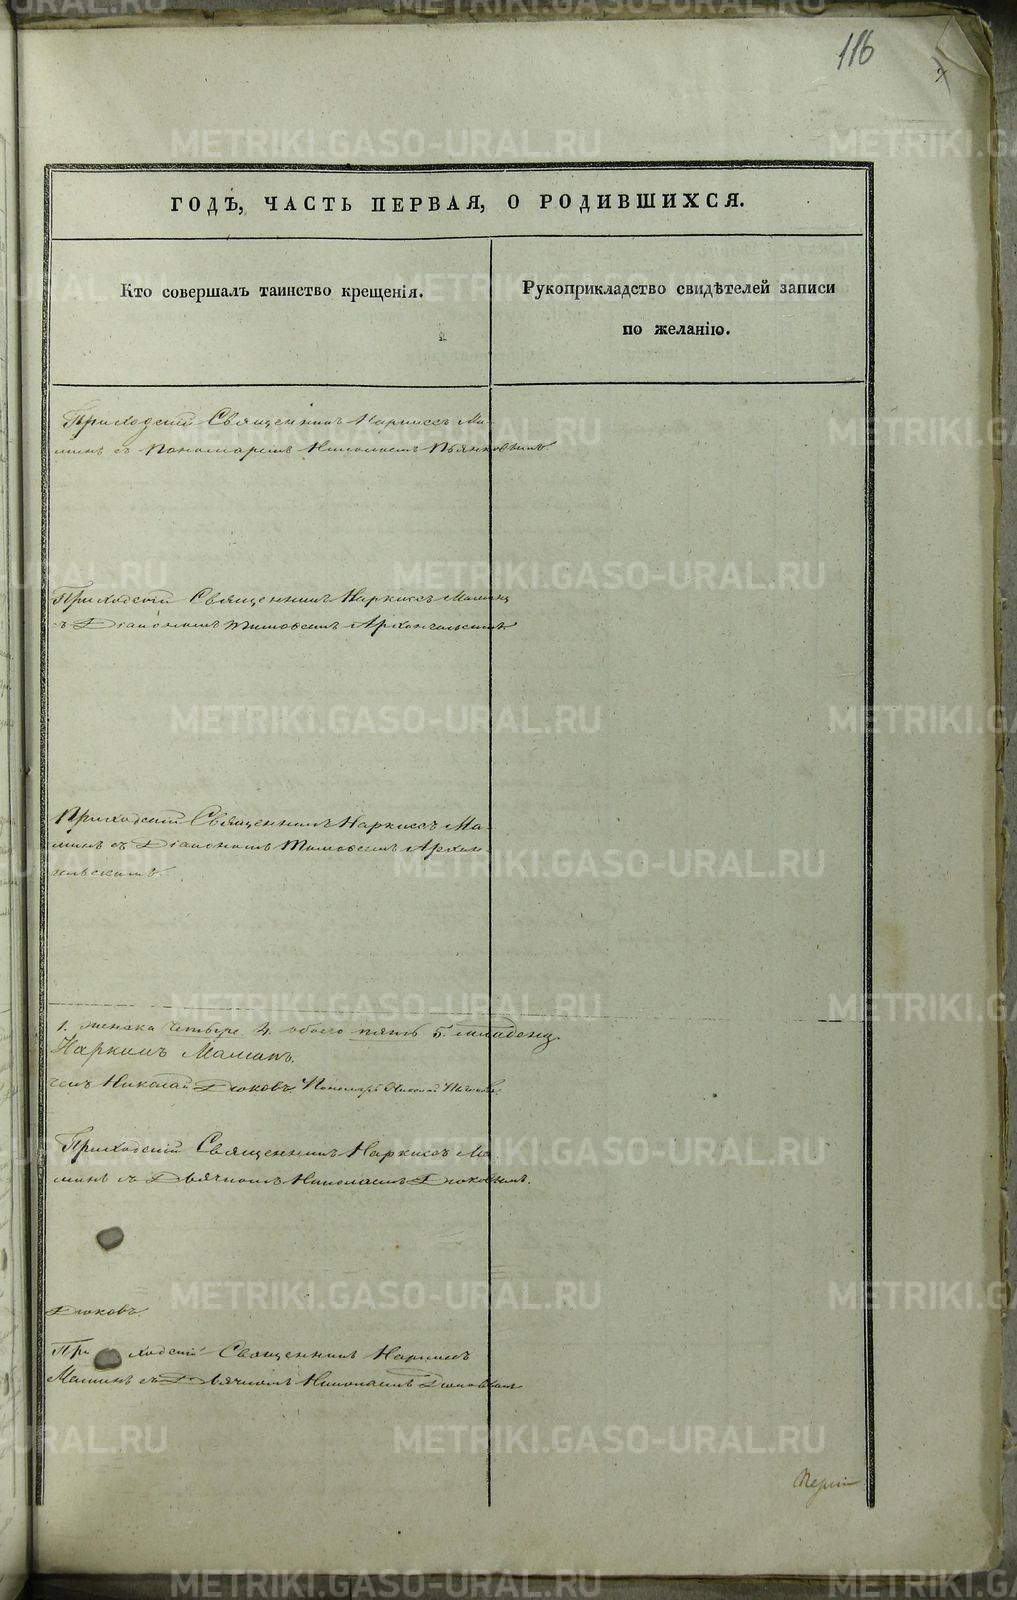 116
ГОДЪ, ЧАСТЬ ПЕРВАЯ, О РОДИВШИХСЯ.
Кто совершалъ таинство крещенія.
Рукоприкладство свидѣтелей записи
по желанію.
Приходскій Священникъ Наркиссъ Ма-
минъ съ Пономаремъ Николаемъ Пьянковымъ.
Приходскій Священникъ Наркиссъ Маминъ
съ Діакономъ Тимофеемъ Архангельскимъ
Приходскій Священникъ Наркиссъ Ма-
минъ съ Діакономъ Тимофеемъ Архан-
гельскимъ.
1. женска четыре 4. обоего пять 5. младенц
Наркисъ Маминъ.
Николай Дюковъ. Пономарь Николай
Приходскій Священникъ Наркиссъ Ма-
минъ съ Дьячкомъ Николаемъ Дюковымъ.
Дюковъ.
Приходскій Священникъ Наркисъ
Маминъ съ Дьячкомъ Николаемъ Дюковымъ
METRIKI.GASO-URAL.RU